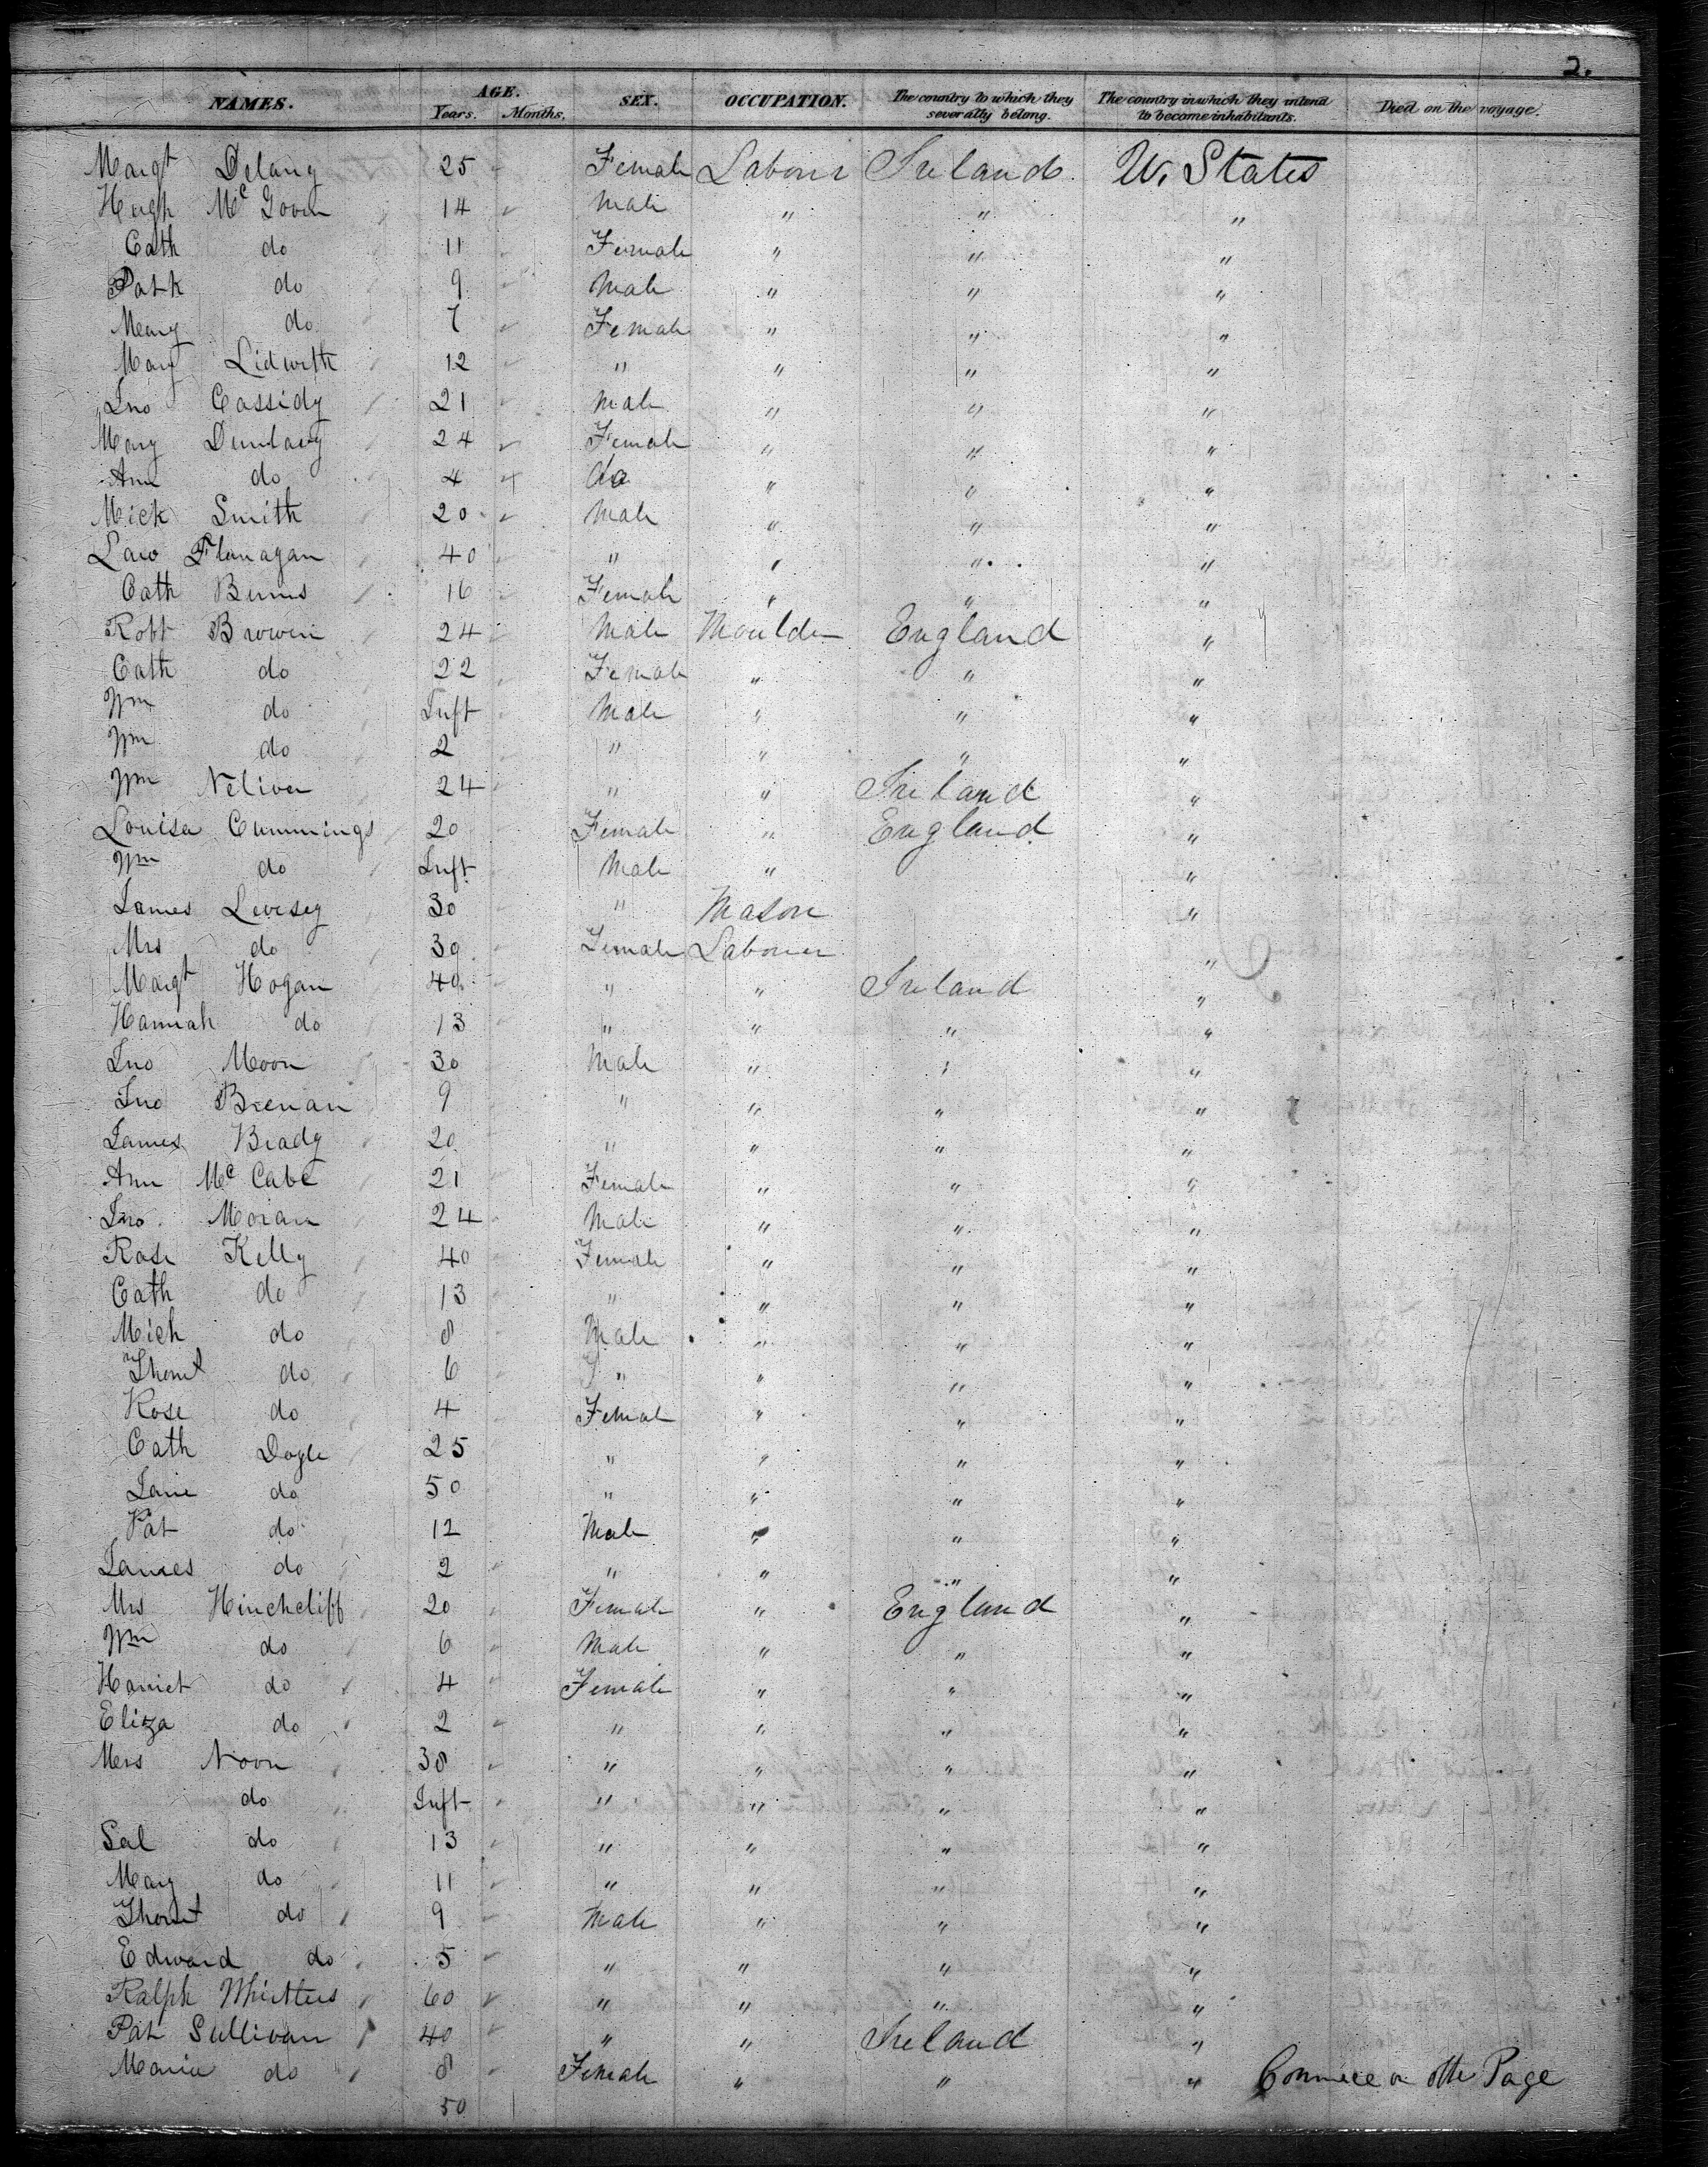 2.
NAMES. AGE. Years. Months. SEX. OCCUPATION. The country to which they severally belong. The country in which they intend to become inhabitants. Died on the voyage.
Margt Delany 25 Female Labourer Ireland U. States
Hugh Mc Govern 14 Male " " "
Cath do 11 Female " " "
Patk do 9 Male " " "
Mary do 7 Female " " "
Mary Lidwith 12 " " " "
Jno Cassidy 21 Male " " "
Mary Dunlavy 24 Female " " "
Ann do 4 do " " "
Mick Smith 20 Male " " "
Law Flanagan 40 " " " "
Cath Burns 16 Female " " "
Robt Brown 24 Male Moulder England "
Cath do 22 Female " " "
Wm do Inft Male " " "
Wm do 2 " " " "
Wm 24 " " Ireland "
Louisa Cummings 20 Female " England "
Wm do Inft Male " "
James Livesey 30 " Mason "
Mrs do 30 Female Labourer "
Margt Hogan 40 " " Ireland "
Hannah do 13 " " " "
Jno Moon 30 Male " " "
Jno Brenan 9 " " " "
James Brady 20 " " " "
Ann Mc Cabe 21 Female " " "
Jno Moran 24 Male " " "
Rose Kelly 40 Female " " "
Cath do 13 " " " "
Mich do 8 Male " " "
Thomt do 6 " " " "
Rose do 4 Female " " "
Cath Doyle 25 " " " "
Jane do 50 " " " "
Pat do 12 Male " " "
James do 2 " " " "
Mrs Hinchcliff 20 Female " England "
Wm do 6 Male " " "
Harriet do 4 Female " " "
Eliza do 2 " " " "
Mrs Noon 30 " " " "
do Inft " " " "
Sal do 13 " " " "
Mary do 11 " " " "
Thomt do 9 Male " " "
Edward do 5 " " " "
Ralph Whittles 60 " " " "
Pat Sullivan 40 " " Ireland "
Maria do 8 Female " " " on othr Page
50